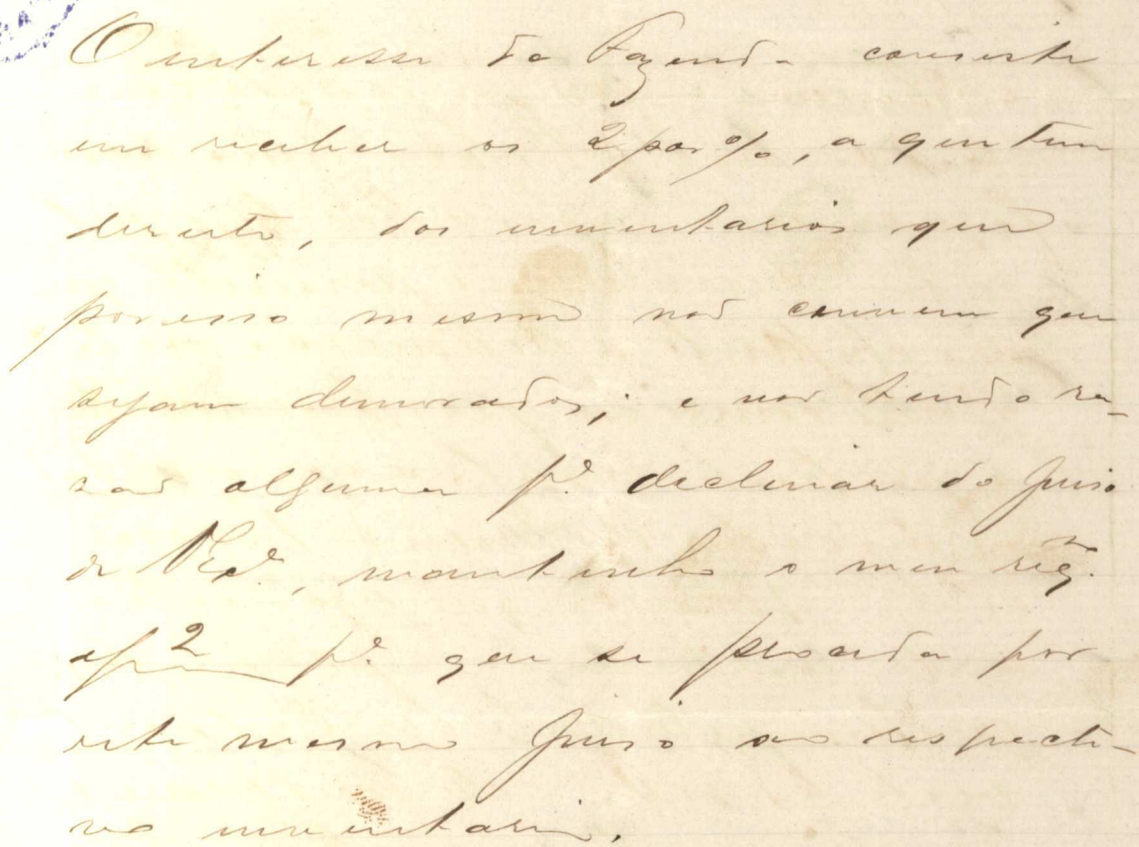 O interesse da Fazenda consiste
em receber os 2 por %, a que tem
direito, dos inventarios que
por isso mesmo não convem que
sejam demorados; e não tendo ra-
são alguma pª. declinar do Juiso
de V Exª., mantenho o meu req.
a f 2 pª. que se proceda por
este mesmo Juiso ao respecti-
vo inventario.